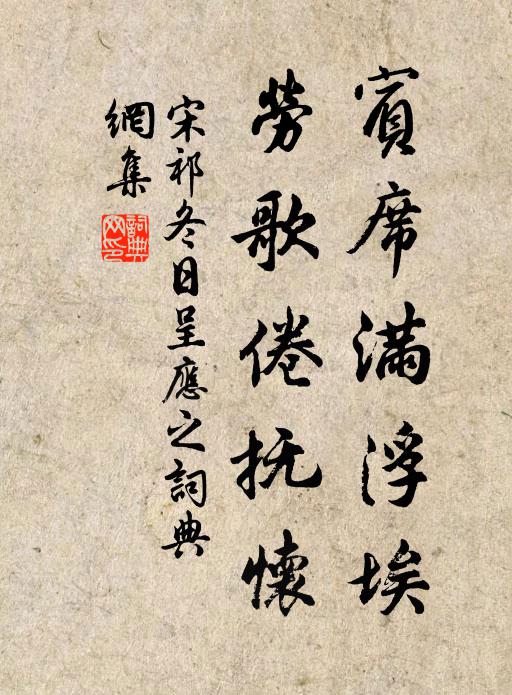 賓席滿浮埃
勞歌倦抚懷
宋祁冬日呈應之詞典
網集
詞典
网印